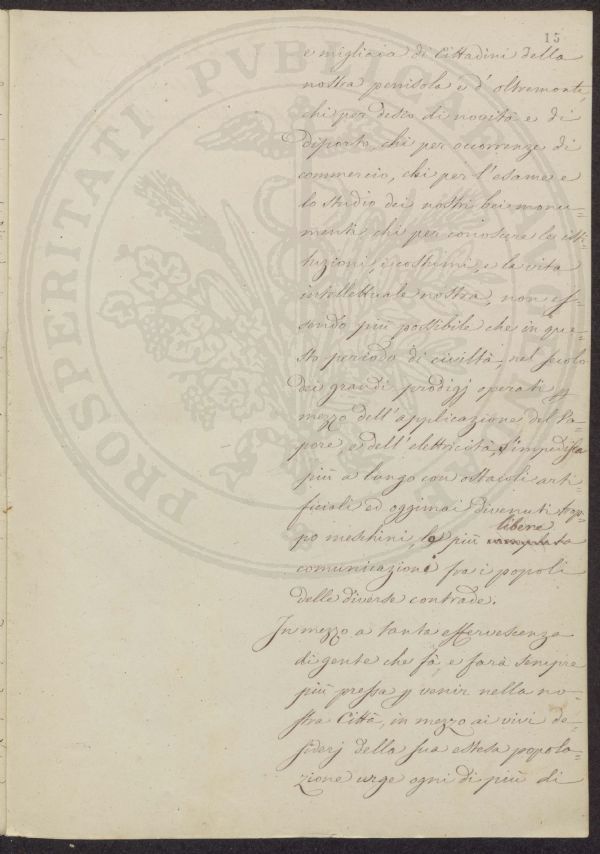 15
e migliaia di Cittadini della
nostra penisola e d'oltremonte,
chi per desio di novità e di
diporto, chi per occorrenze di
commercio, chi per l'esame e
lo studio dei nostri bei monu=
menti, chi per conoscere le isti=
tuzioni, i costumi, e la vita
intellettuale nostra, non es=
sendo più possibile che in que=
sto periodo di civiltà, nel secolo
dei grandi prodigj operati p
mezzo dell'applicazione del Va=
pore, e dell'elettricità, s'impedisca
più a lungo con ostacoli arti=
ficiali ed oggimai divenuti trop=
po meschini, le più libere
comunicazioni fra i popoli
delle diverse contrade.
In mezzo a tanta effervescenza
di gente che fà, e farà sempre
più pressa p venir nella no=
stra Città, in mezzo ai vivi de=
siderj della sua estesa popola=
zione urge ogni dì più di
PROSPERITATI PVBLICAE